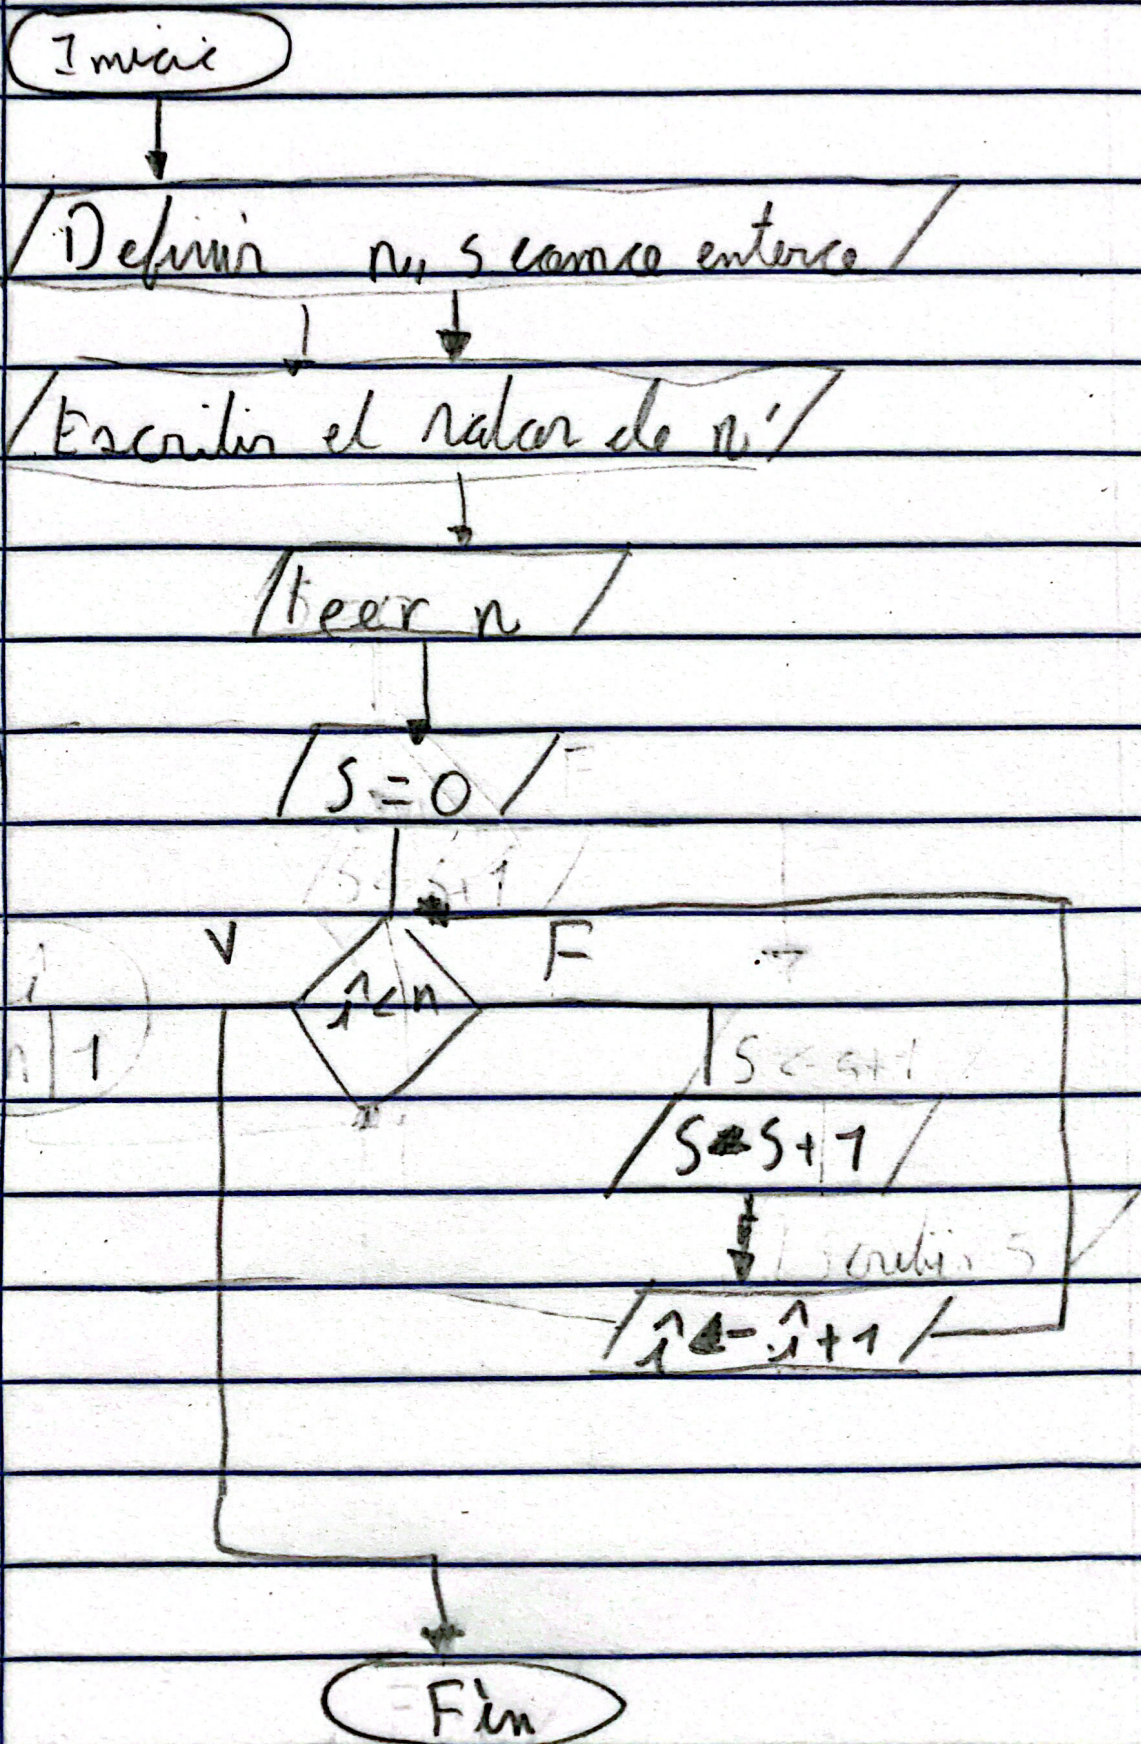 Inicio
Definir n,, s como entero
Escribir el valor de n'
Leer n
S = 0
V
F
i < n
S ← S + 1
i ← i + 1
Fin